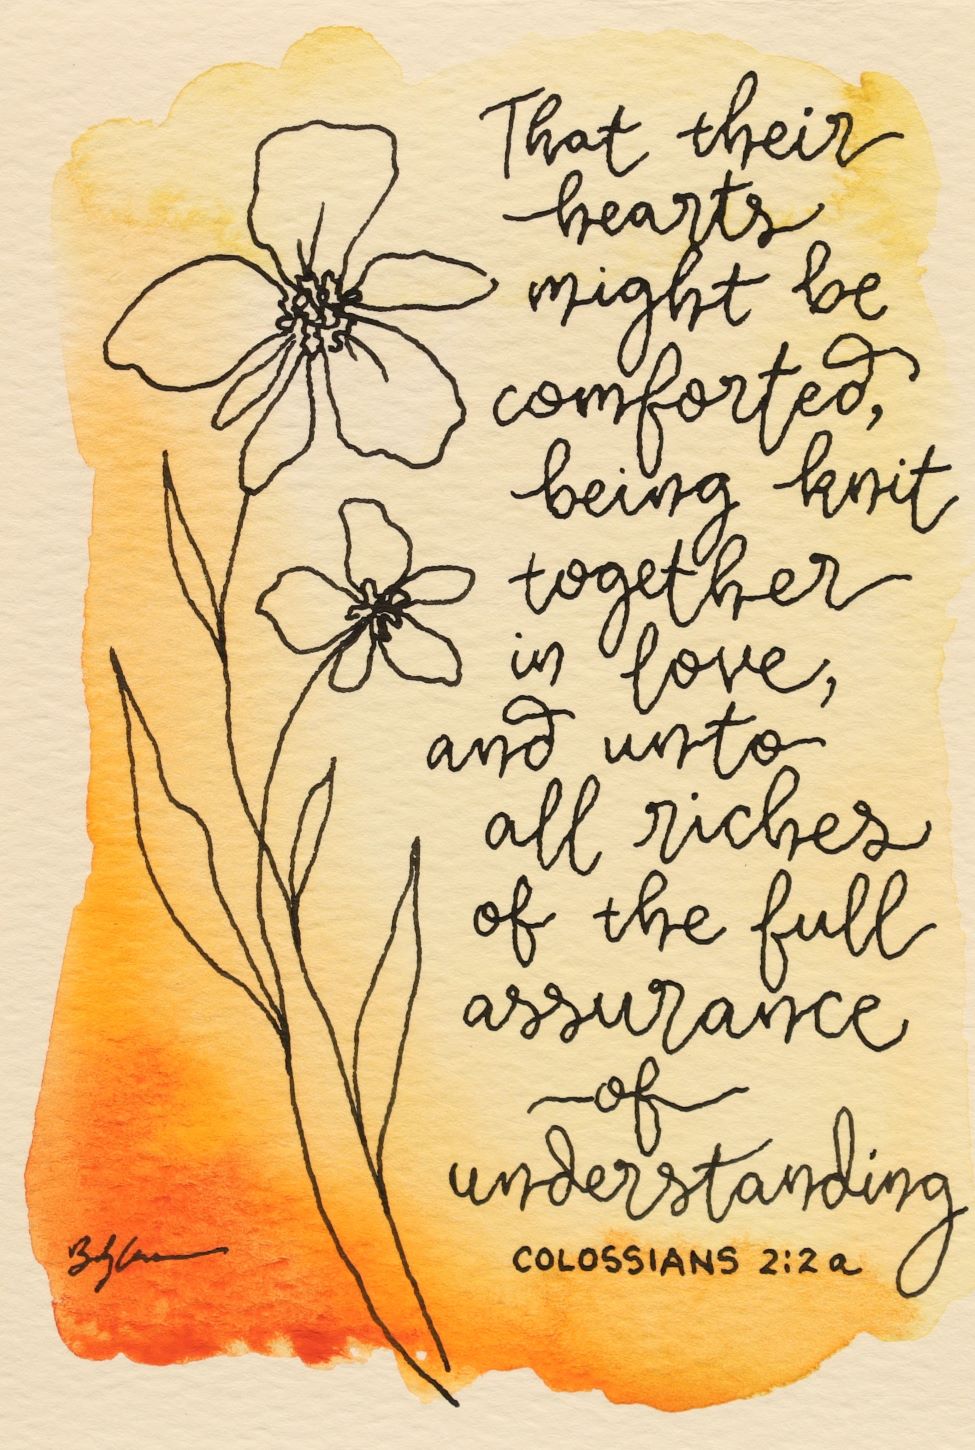 That their
hearts
might be
comforted,
being knit
together
in love,
and unto
all riches
of the full
assurance
of
understanding
COLOSSIANS 2:2a